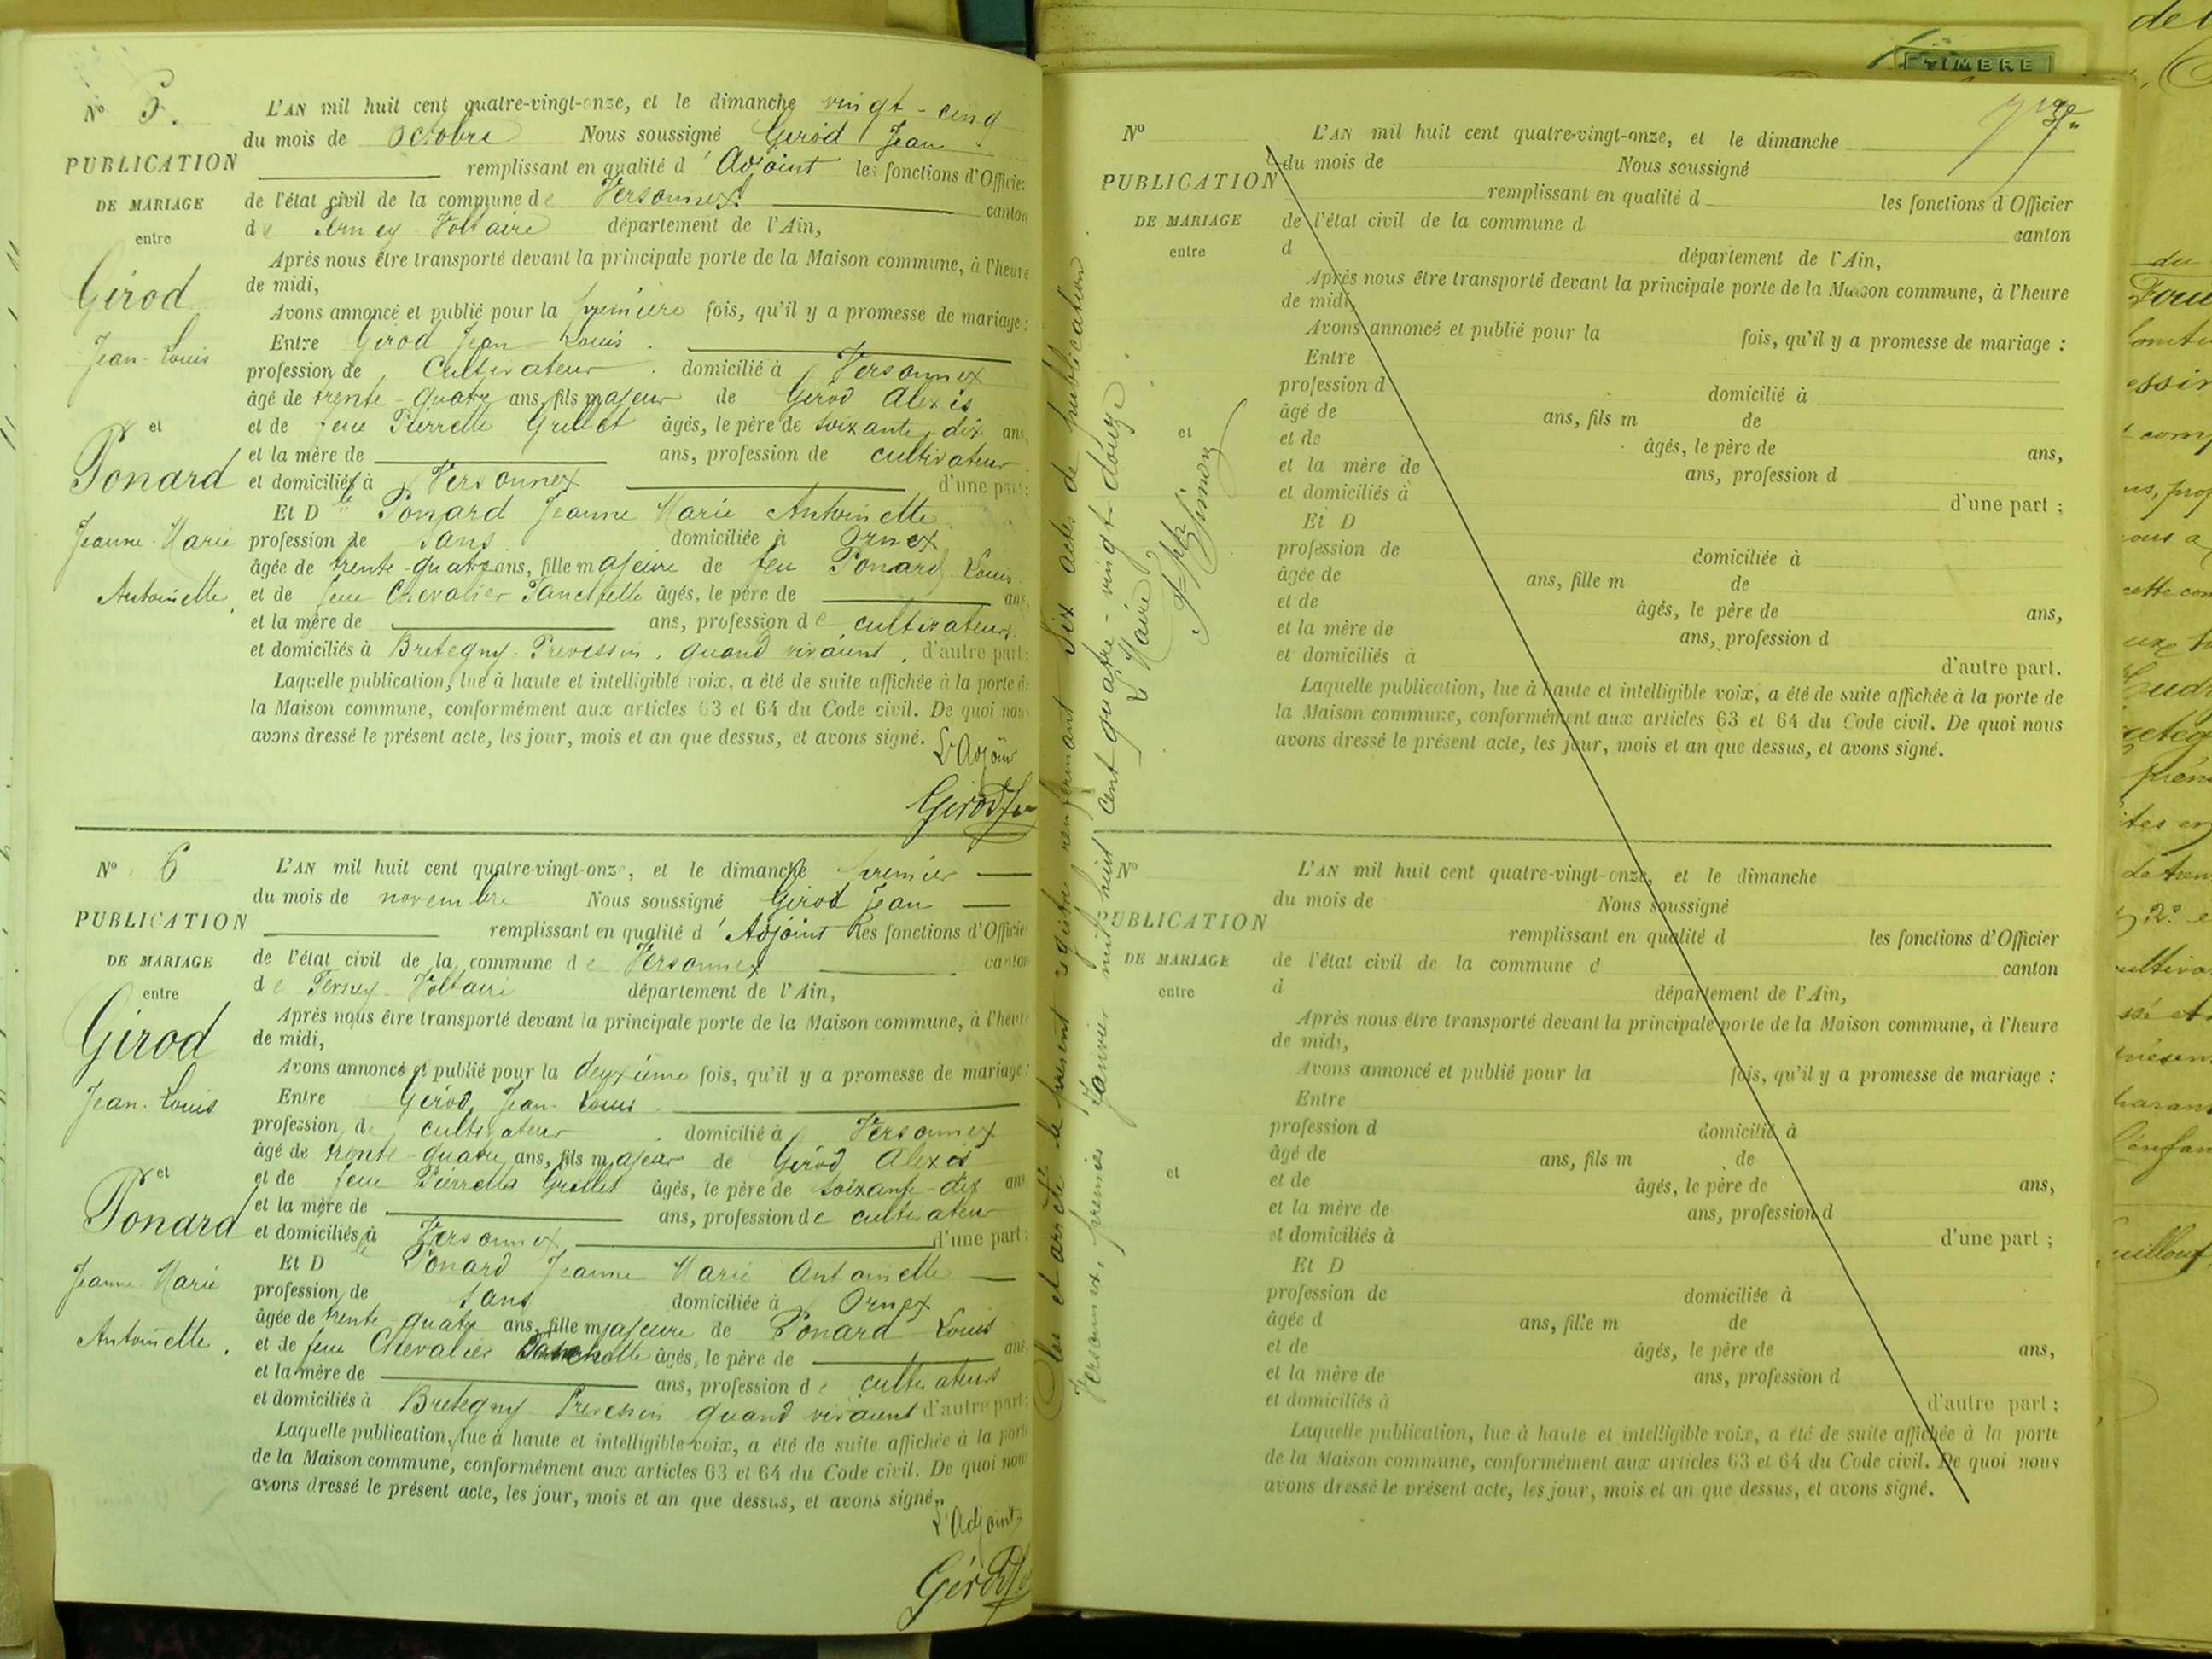 Nº 5.
PUBLICATION
DE MARIAGE
entre
Girod
Jean-Louis
et
Ponard
Jeanne-Marie
Antoinette
L'AN mil huit cent quatre-vingt-onze, et le dimanche vingt-cinq
du mois de octobre Nous soussigné Girod Jean
remplissant en qualité d'Adjoint les fonctions d'Officier
de l'état civil de la commune de Versonnex canton
de Ferney Voltaire département de l'Ain,
Après nous être transporté devant la principale porte de la Maison commune, à l'heure
de midi,
Avons annoncé et publié pour la première fois, qu'il y a promesse de mariage :
Entre Girod Jean Louis.
profession de Cultivateur. domicilié à Versonnex
âgé de trente-quatre ans, fils majeur de Girod Alexis
et de feue Pierrette Grellet âgés, le père de soixante-dix ans,
et la mère de ans, profession de cultivateur
et domiciliés à Versonnex d'une part ;
Et Dlle Ponard Jeanne Marie Antoinette
profession de sans domiciliée à Ornex
âgée de trente-quatre ans, fille majeure de feu Ponard Louis
et de feue Chevalier âgés, le père de ans,
et la mère de ans, profession de cultivateurs
et domiciliés à Bretegny-Prevessin, quand vivaient, d'autre part :
Laquelle publication, lue à haute et intelligible voix, a été de suite affichée à la porte de
la Maison commune, conformément aux articles 63 et 64 du Code civil. De quoi nous
avons dressé le présent acte, les jour, mois et an que dessus, et avons signé.
L'Adjoint
Girod Jean
Nº 6
PUBLICATION
DE MARIAGE
entre
Girod
Jean-Louis
et
Ponard
Jeanne-Marie
Antoinette.
L'AN mil huit cent quatre-vingt-onze, et le dimanche premier
du mois de novembre Nous soussigné Girod Jean
remplissant en qualité d'Adjoint les fonctions d'Officier
de l'état civil de la commune de Versonnex canton
de Ferney-Voltaire département de l'Ain,
Après nous être transporté devant la principale porte de la Maison commune, à l'heure
de midi,
Avons annoncé et publié pour la deuxième fois, qu'il y a promesse de mariage :
Entre Girod, Jean-Louis.
profession de cultivateur. domicilié à Versonnex
âgé de trente-quatre ans, fils majeur de Girod Alexis
et de feue Pierrette Grellet âgés, le père de soixante-dix ans
et la mère de ans, profession de cultivateur
et domiciliés à Versonnex d'une part ;
Et Dlle Ponard Jeanne Marie Antoinette
profession de sans domiciliée à Ornex
âgée de trente quatre ans, fille majeure de Ponard Louis
et de feue Chevalier âgés, le père de ans,
et la mère de ans, profession de cultivateurs
et domiciliés à Bretegny-Prevessin quand vivaient d'autre part :
Laquelle publication, lue à haute et intelligible voix, a été de suite affichée à la porte
de la Maison commune, conformément aux articles 63 et 64 du Code civil. De quoi nous
avons dressé le présent acte, les jour, mois et an que dessus, et avons signé.
L'Adjoint
Girod Jean
TIMBRE
Clos et arrêté le présent registre renfermant six actes de publication
Versonnex, premier Janvier mil huit cent quatre-vingt-douze.
Le Maire
Nº
PUBLICATION
DE MARIAGE
entre
et
L'AN mil huit cent quatre-vingt-onze, et le dimanche
du mois de Nous soussigné
remplissant en qualité d les fonctions d'Officier
de l'état civil de la commune d canton
d département de l'Ain,
Après nous être transporté devant la principale porte de la Maison commune, à l'heure
de midi,
Avons annoncé et publié pour la fois, qu'il y a promesse de mariage :
Entre
profession d domicilié à
âgé de ans, fils m de
et de âgés, le père de ans,
et la mère de ans, profession d
et domiciliés à d'une part ;
Et D
profession de domiciliée à
âgée de ans, fille m de
et de âgés, le père de ans,
et la mère de ans, profession d
et domiciliés à d'autre part.
Laquelle publication, lue à haute et intelligible voix, a été de suite affichée à la porte de
la Maison commune, conformément aux articles 63 et 64 du Code civil. De quoi nous
avons dressé le présent acte, les jour, mois et an que dessus, et avons signé.
Nº
PUBLICATION
DE MARIAGE
entre
et
L'AN mil huit cent quatre-vingt-onze, et le dimanche
du mois de Nous soussigné
remplissant en qualité d les fonctions d'Officier
de l'état civil de la commune d canton
d département de l'Ain,
Après nous être transporté devant la principale porte de la Maison commune, à l'heure
de midi,
Avons annoncé et publié pour la fois, qu'il y a promesse de mariage :
Entre
profession d domicilié à
âgé de ans, fils m de
et de âgés, le père de ans,
et la mère de ans, profession d
et domiciliés à d'une part ;
Et D
profession de domiciliée à
âgée d ans, fille m de
et de âgés, le père de ans,
et la mère de ans, profession d
et domiciliés à d'autre part :
Laquelle publication, lue à haute et intelligible voix, a été de suite affichée à la porte
de la Maison commune, conformément aux articles 63 et 64 du Code civil. De quoi nous
avons dressé le présent acte, les jour, mois et an que dessus, et avons signé.